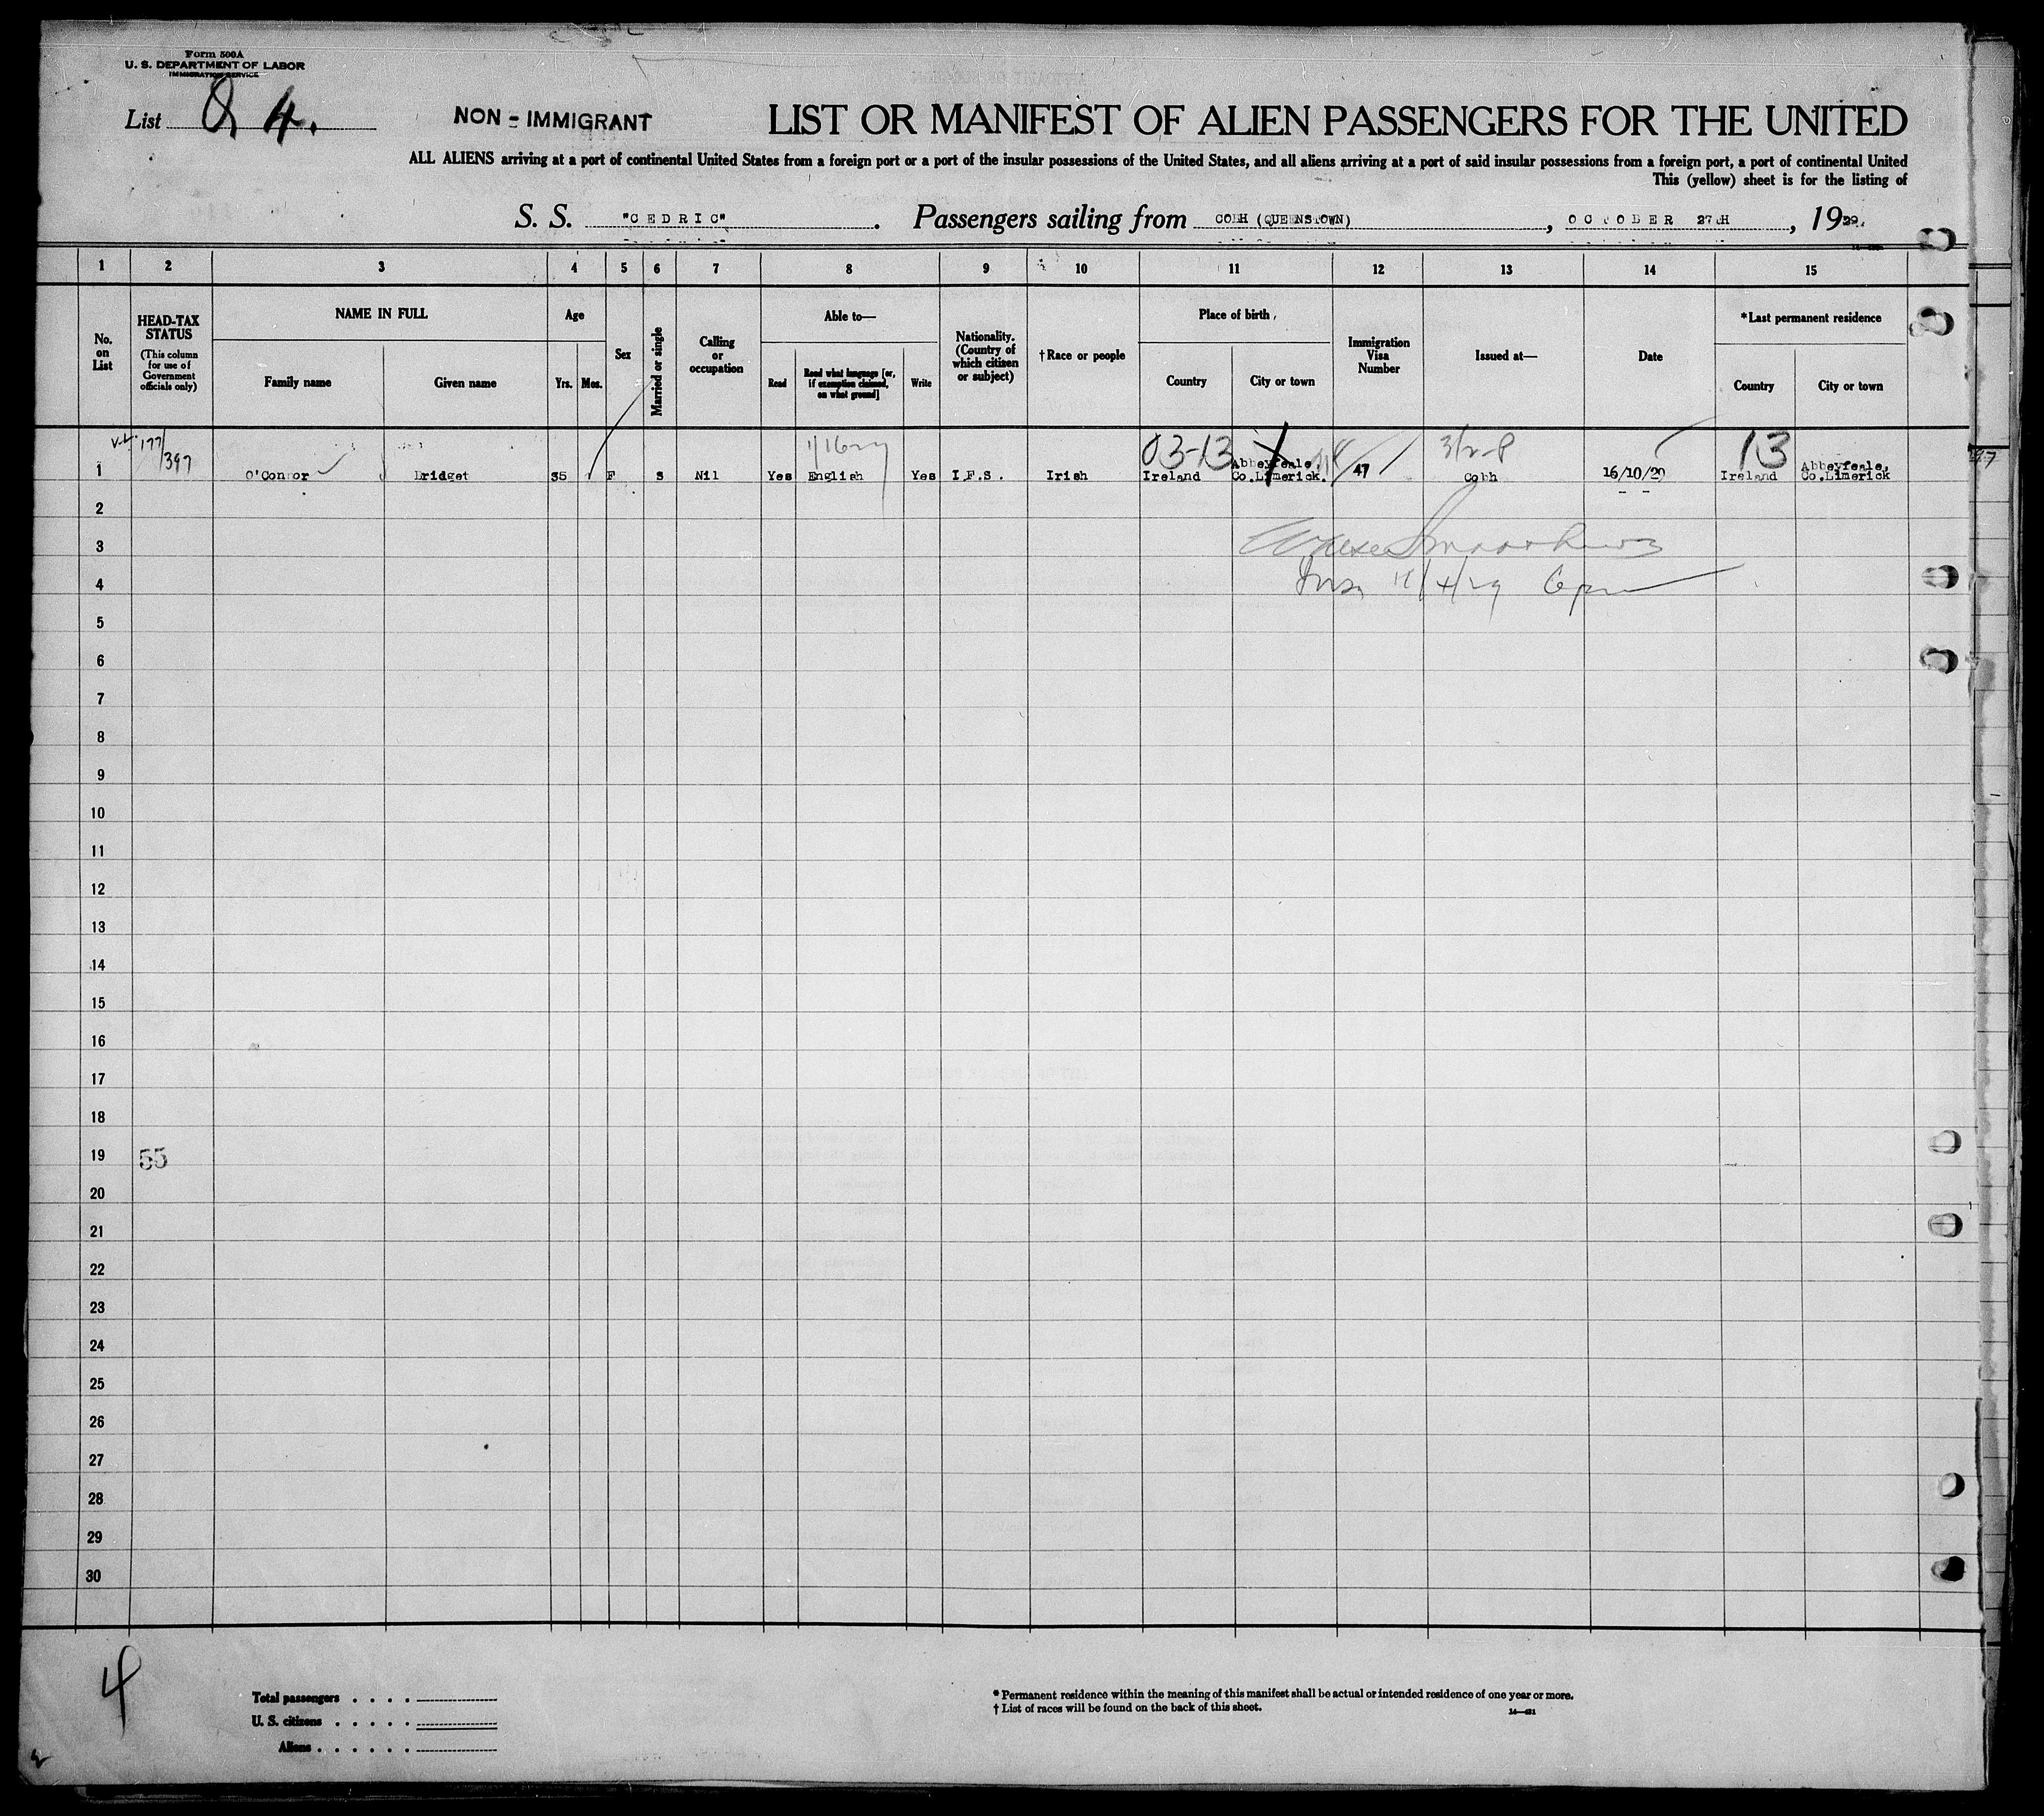 Form 500A
U. S. DEPARTMENT OF LABOR
IMMIGRATION SERVICE
List 4.
NON - IMMIGRANT
LIST OR MANIFEST OF ALIEN PASSENGERS FOR THE UNITED
ALL ALIENS arriving at a port of continental United States from a foreign port or a port of the insular possessions of the United States, and all aliens arriving at a port of said insular possessions from a foreign port, a port of continental United
This (yellow) sheet is for the listing of
S. S. "CEDRIC". Passengers sailing from COBH (QUEENSTOWN), OCTOBER 27TH, 1929.
1 2 3 4 5 6 7 8 9 10 11 12 13 14 15
No. on List
HEAD-TAX STATUS
(This column for use of Government officials only)
NAME IN FULL
Family name
Given name
Age
Yrs.
Mos.
Sex
Married or single
Calling or occupation
Able to—
Read
Read what language [or, if exemption claimed, on what ground]
Write
Nationality. (Country of which citizen or subject)
† Race or people
Place of birth
Country
City or town
Immigration Visa Number
Issued at—
Date
*Last permanent residence
Country
City or town
177/397
03-13
13
1 O'Connor Bridget 35 F S Nil Yes English Yes I.F.S. Irish Ireland Abbeyfeale, Co.Limerick. 47 Cobh 16/10/29 Ireland Abbeyfeale, Co.Limerick
2
3
4
5
6
7
8
9
10
11
12
13
14
15
16
17
18
19 55
20
21
22
23
24
25
26
27
28
29
30
4
Total passengers . . . .
U. S. citizens . . . . .
Aliens . . . . . .
* Permanent residence within the meaning of this manifest shall be actual or intended residence of one year or more.
† List of races will be found on the back of this sheet.